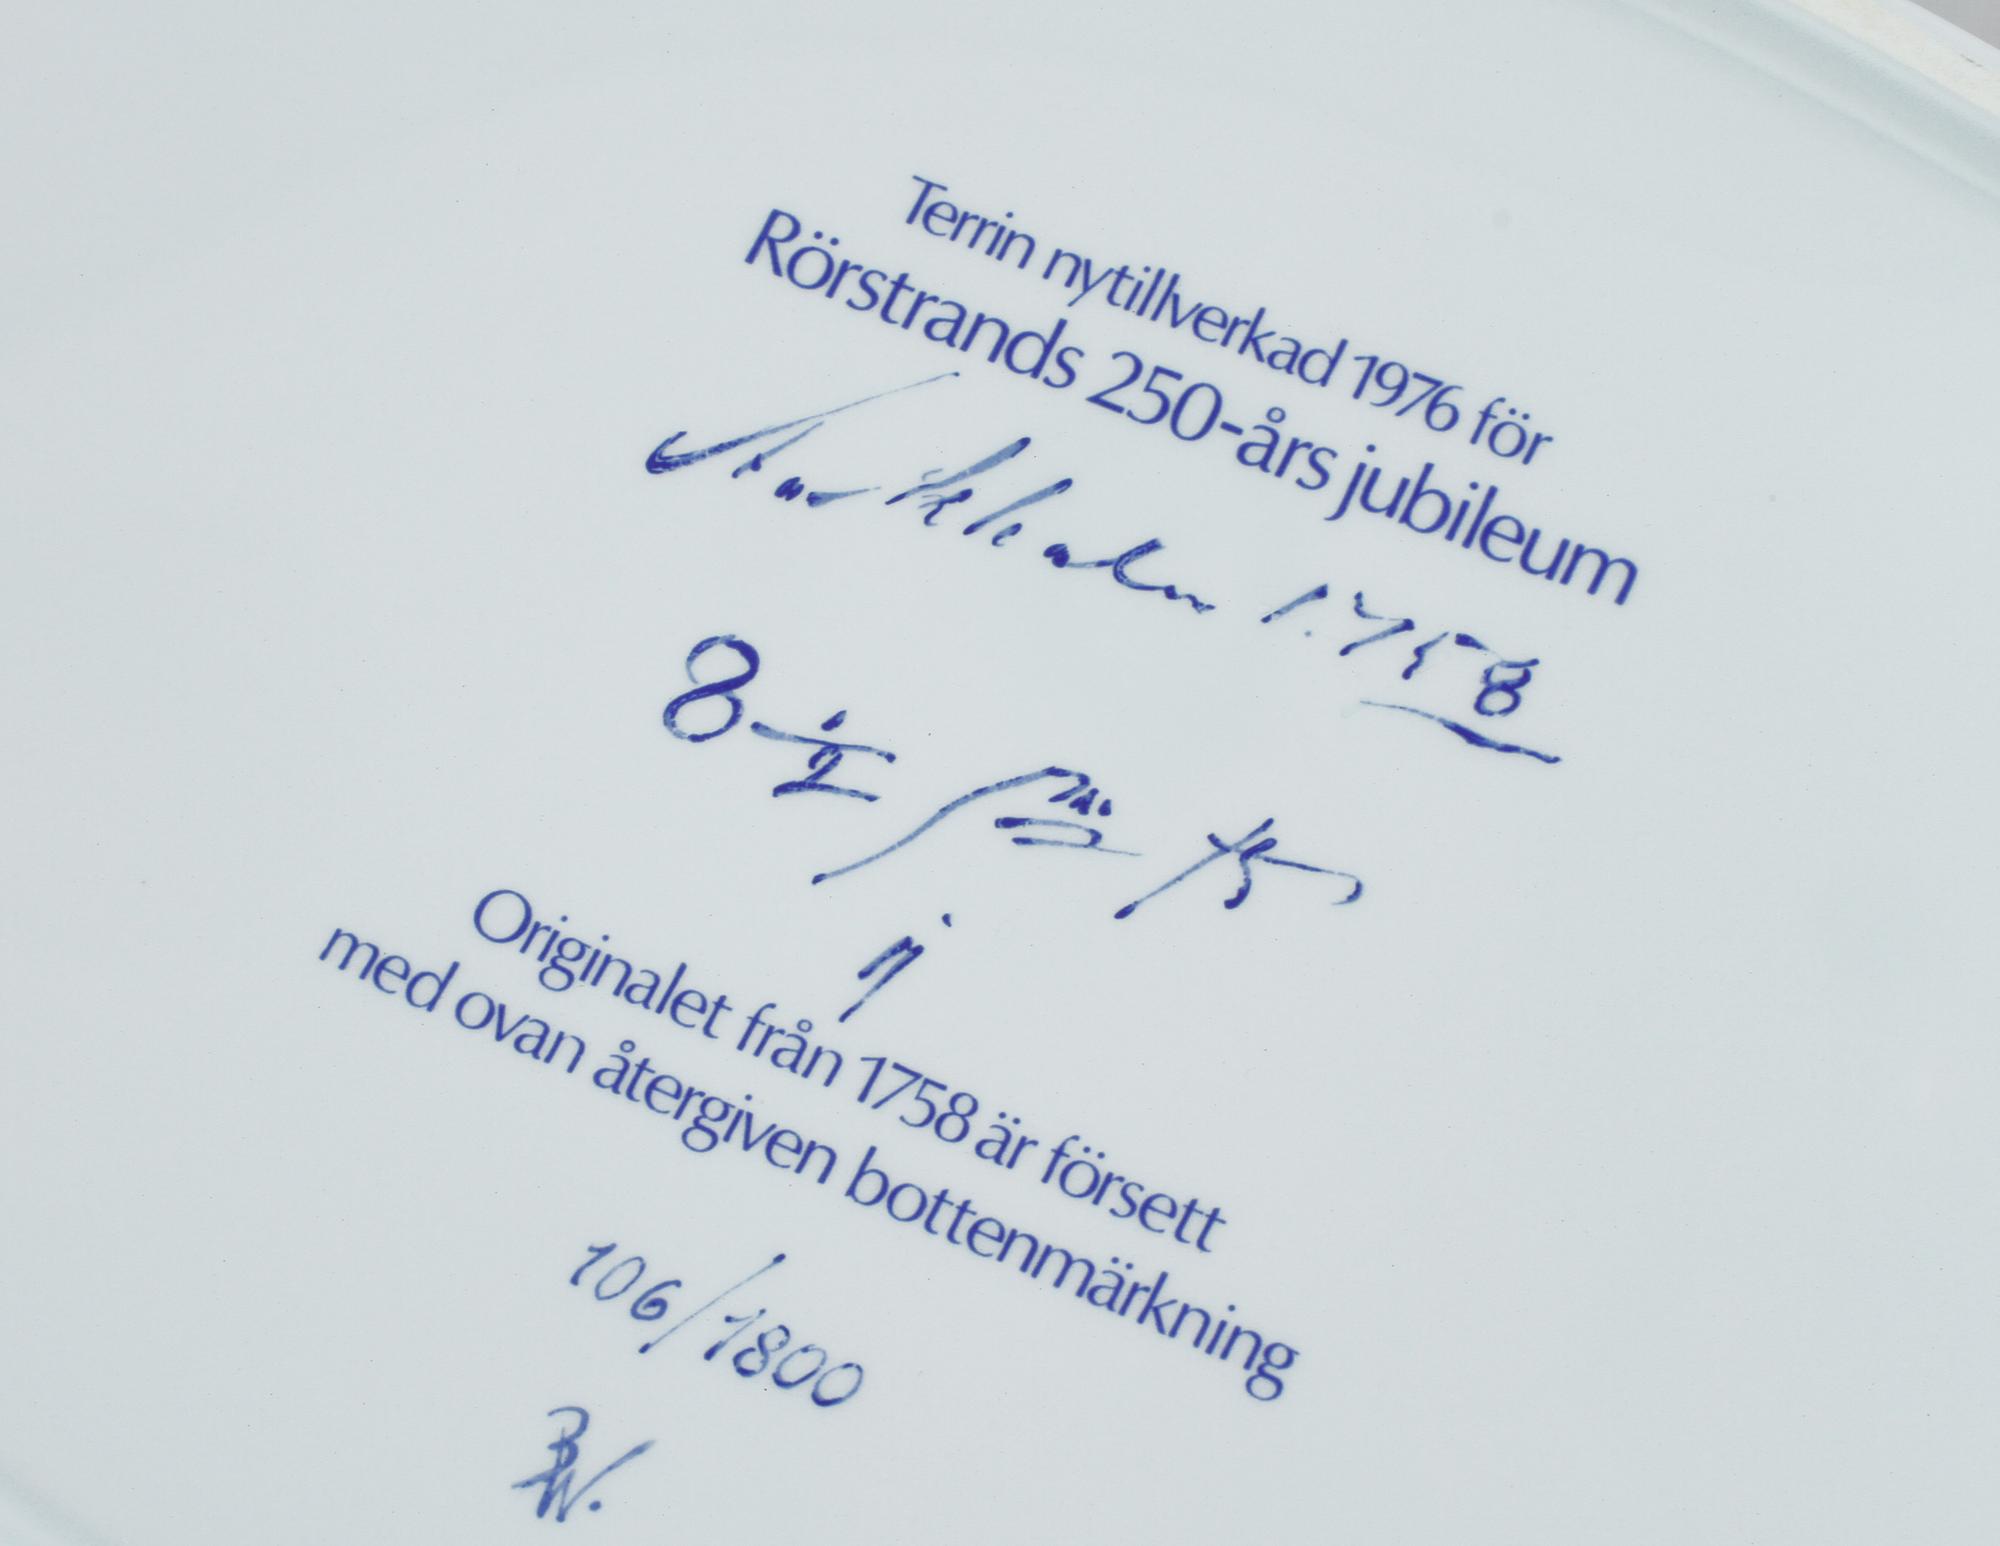 Terrin nytillverkad 1976 för
Rörstrands 250-års jubileum
Stockholm 1.758
8 1/2
Originalet från 1758 är försett
med ovan återgiven bottenmärkning
106/1800
BW.